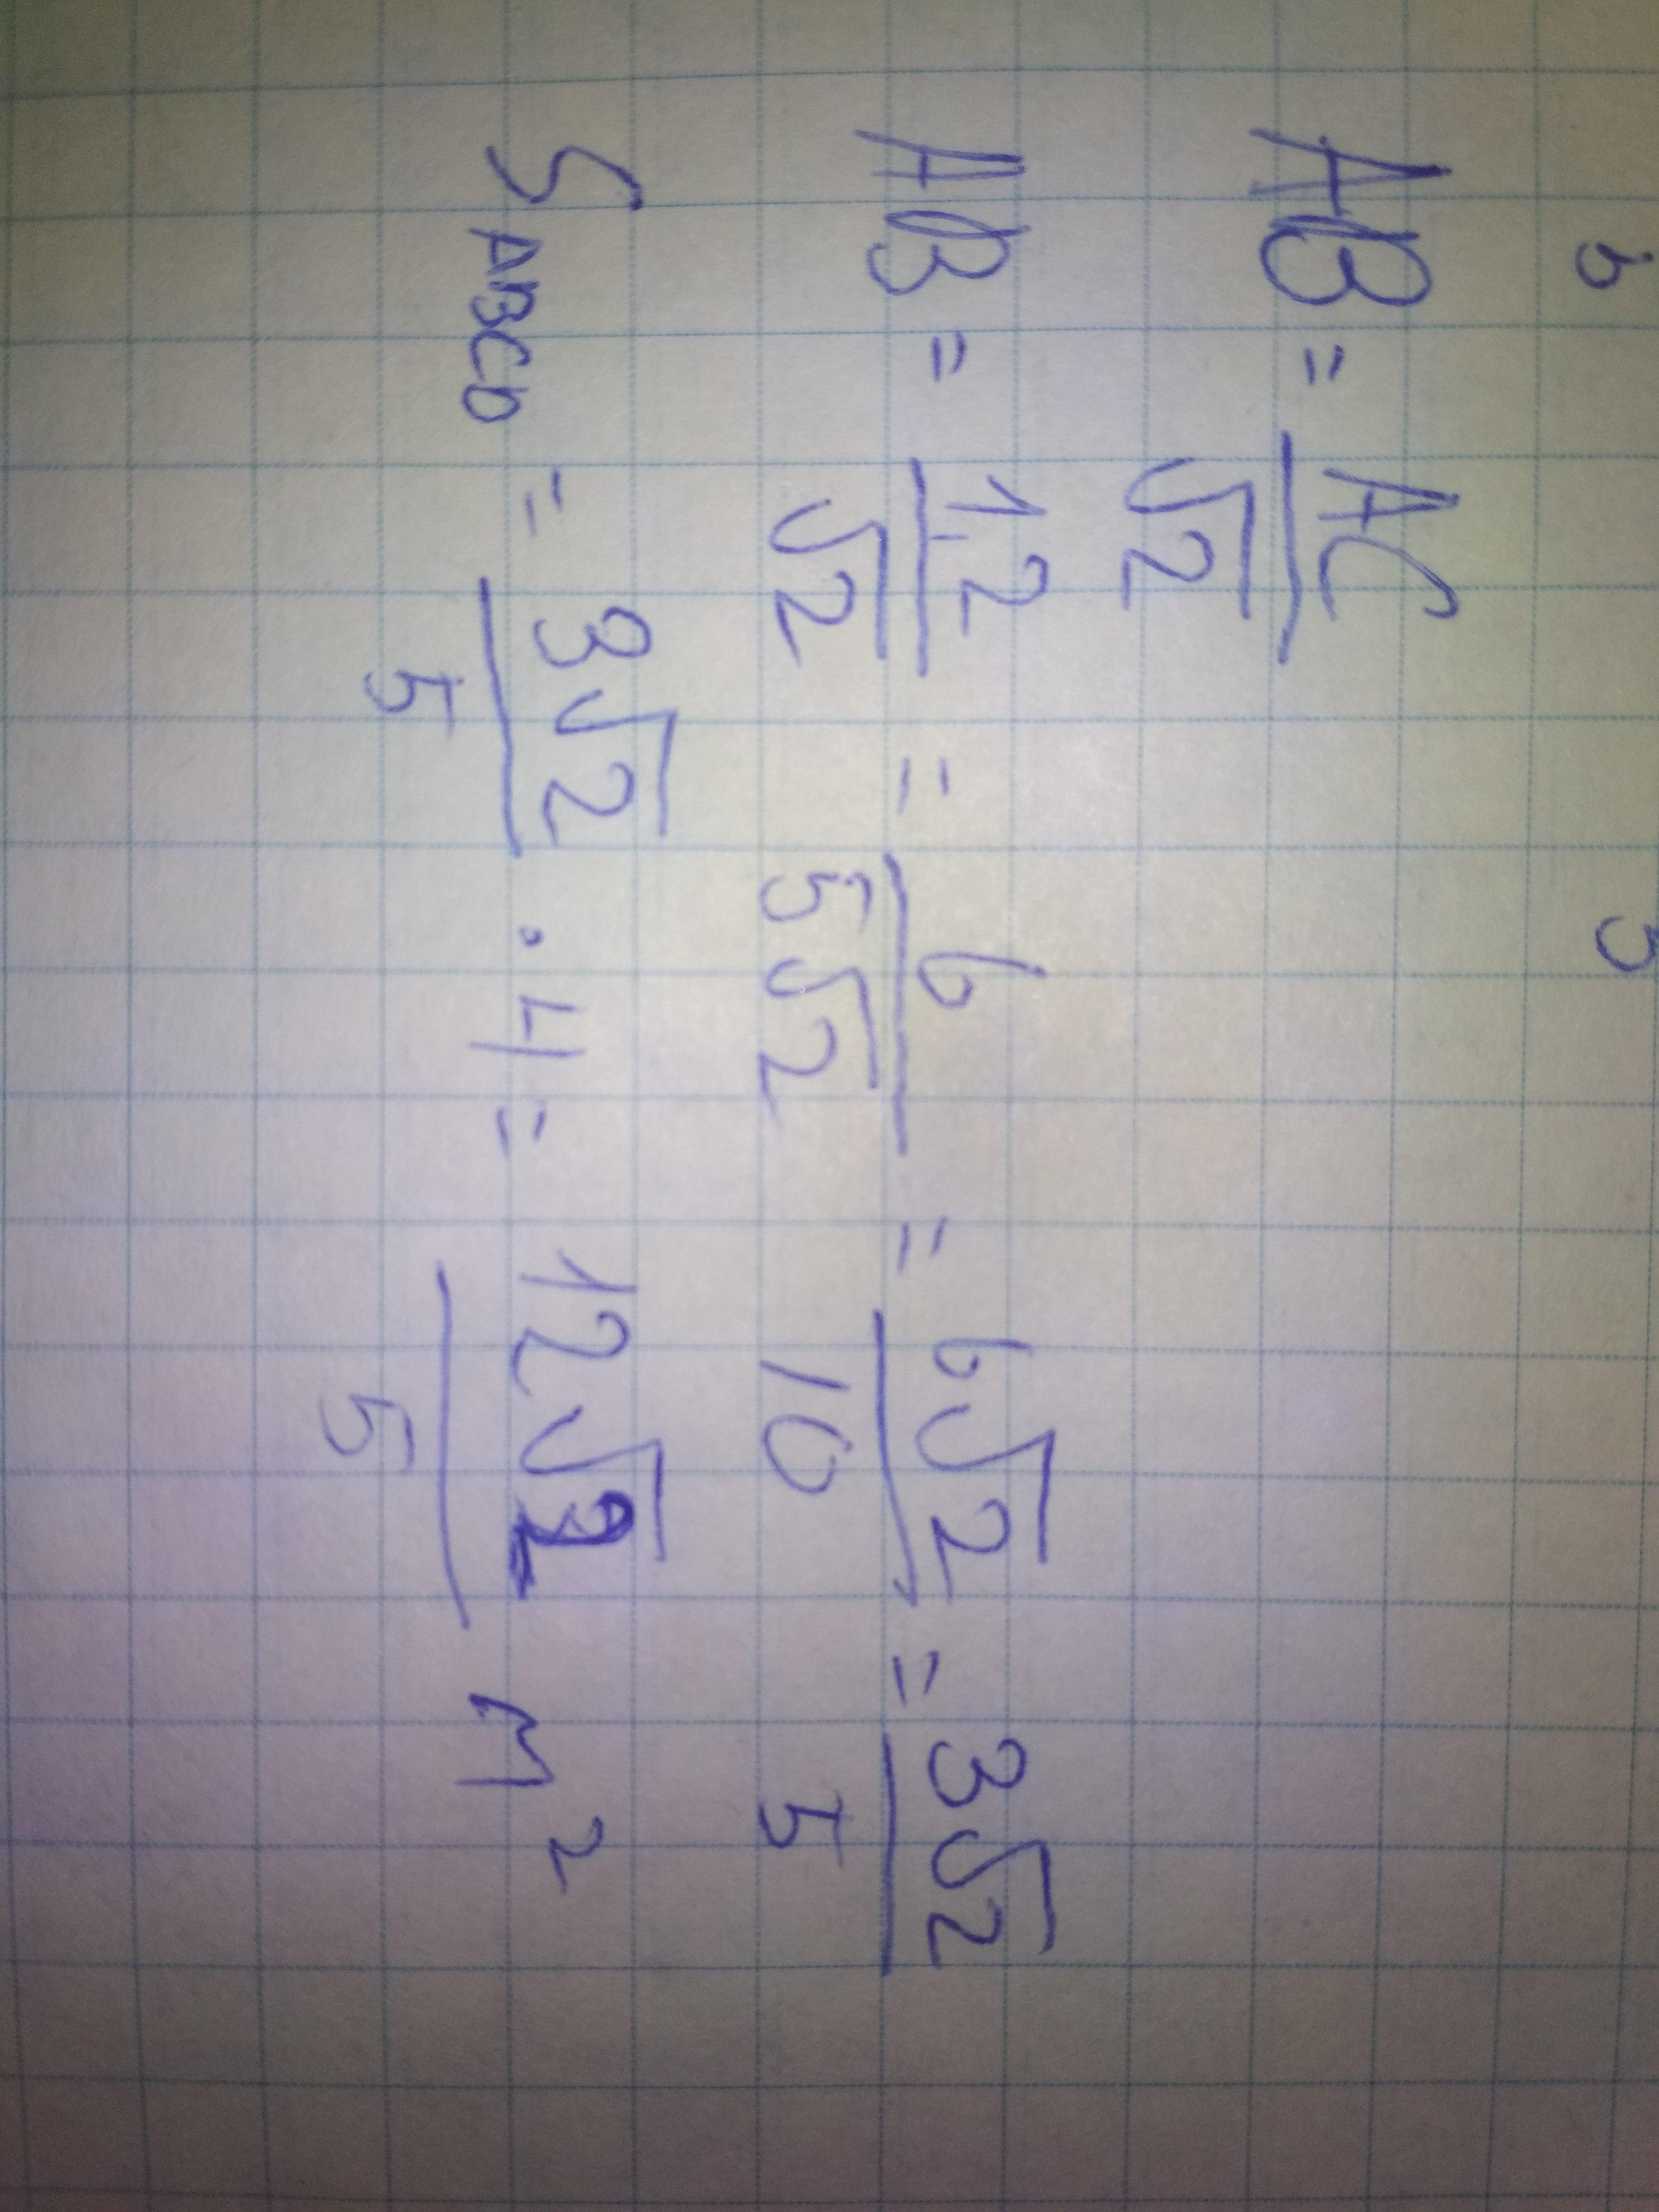 AB = AC/√2
AB = 1.2/√2 = 6/5√2 = 6√2/10 = 3√2/5
S ABCD = 3√2/5 · 4 = 12√2/5 м²